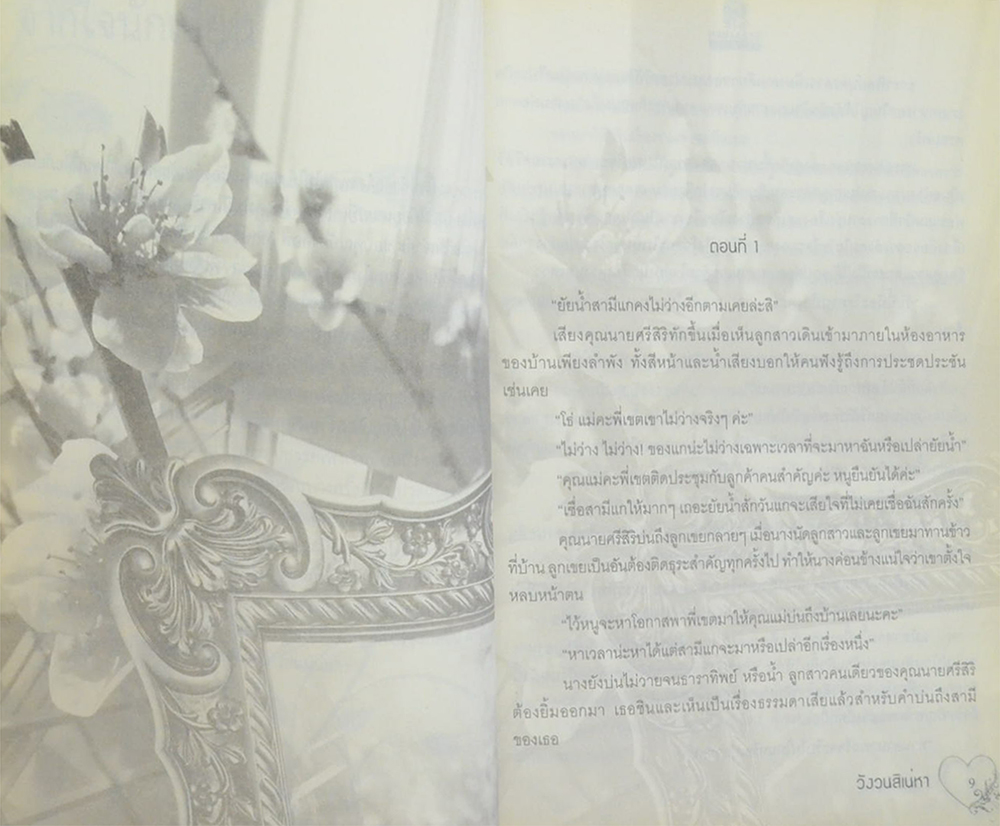 ตอนที่ 1
"ยัยน้ำสามีแกคงไม่ว่างอีกตามเคยล่ะสิ"
เสียงคุณนายศรีสิริทักขึ้นเมื่อเห็นลูกสาวเดินเข้ามาภายในห้องอาหาร
ของบ้านเพียงลำพัง ทั้งสีหน้าและน้ำเสียงบอกให้คนฟังรู้ถึงการประชดประชัน
เช่นเคย
"โธ่ แม่คะพี่เขตเขาไม่ว่างจริงๆ ค่ะ"
"ไม่ว่าง ไม่ว่าง! ของแกน่ะไม่ว่างเฉพาะเวลาที่จะมาหาฉันหรือเปล่ายัยน้ำ"
"คุณแม่คะพี่เขตติดประชุมกับลูกค้าคนสำคัญค่ะ หนูยืนยันได้ค่ะ"
"เชื่อสามีแกให้มากๆ เถอะยัยน้ำสักวันแกจะเสียใจที่ไม่เคยเชื่อฉันสักครั้ง"
คุณนายศรีสิริบ่นถึงลูกเขยกลายๆ เมื่อนางนัดลูกสาวและลูกเขยมาทานข้าว
ที่บ้าน ลูกเขยเป็นอันต้องติดธุระสำคัญทุกครั้งไป ทำให้นางค่อนข้างแน่ใจว่าเขาตั้งใจ
หลบหน้าตน
"ไว้หนูจะหาโอกาสพาพี่เขตมาให้คุณแม่บ่นถึงบ้านเลยนะคะ"
"หาเวลาน่ะหาได้แต่สามีแกจะมาหรือเปล่าอีกเรื่องหนึ่ง"
นางยังบ่นไม่วายจนธาราทิพย์ หรือน้ำ ลูกสาวคนเดียวของคุณนายศรีสิริ
ต้องยิ้มออกมา เธอชินและเห็นเป็นเรื่องธรรมดาเสียแล้วสำหรับคำบ่นถึงสามี
ของเธอ
วังวนสิเน่หา
9